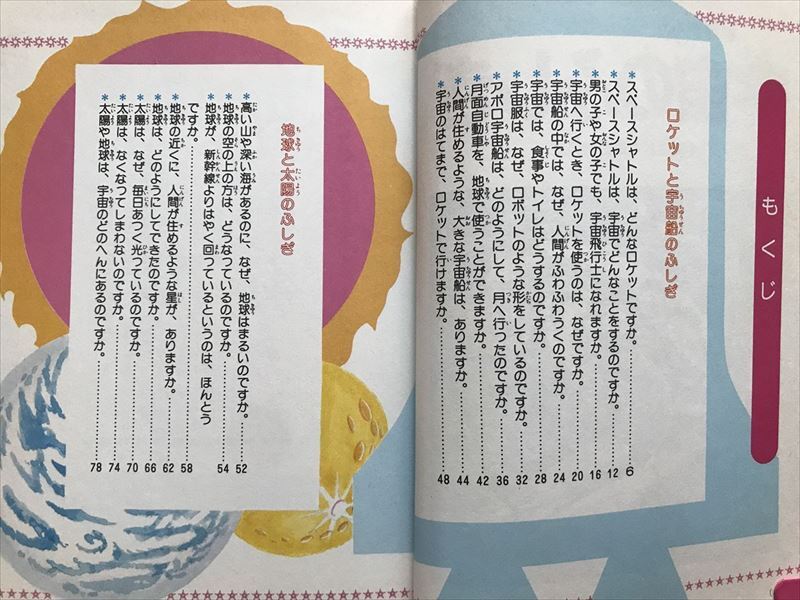 もくじ
ロケットと宇宙船のふしぎ
*スペースシャトルは、どんなロケットですか。…………6
*スペースシャトルは、宇宙でどんなことをするのですか。…………12
*男の子や女の子でも、宇宙飛行士になれますか。…………16
*宇宙へ行くとき、ロケットを使うのは、なぜですか。…………20
*宇宙船の中では、なぜ、人間がふわふわうくのですか。…………24
*宇宙では、食事やトイレはどうするのですか。…………28
*宇宙服は、なぜ、ロボットのような形をしているのですか。…………32
*アポロ宇宙船は、どのようにして、月へ行ったのですか。…………36
*月面自動車を、地球で使うことができますか。…………42
*人間が住めるような、大きな宇宙船は、ありますか。…………44
*宇宙のはてまで、ロケットで行けますか。…………48
地球と太陽のふしぎ
*高い山や深い海があるのに、なぜ、地球はまるいのですか。…………52
*地球の空の上の方は、どうなっているのですか。…………54
*地球が、新幹線よりはやく回っているというのは、ほんとう
ですか。…………58
*地球の近くに、人間が住めるような星が、ありますか。…………62
*地球は、どのようにしてできたのですか。…………66
*太陽は、なぜ、毎日あつく光っているのですか。…………70
*太陽は、なくなってしまわないのですか。…………74
*太陽や地球は、宇宙のどのへんにあるのですか。…………78